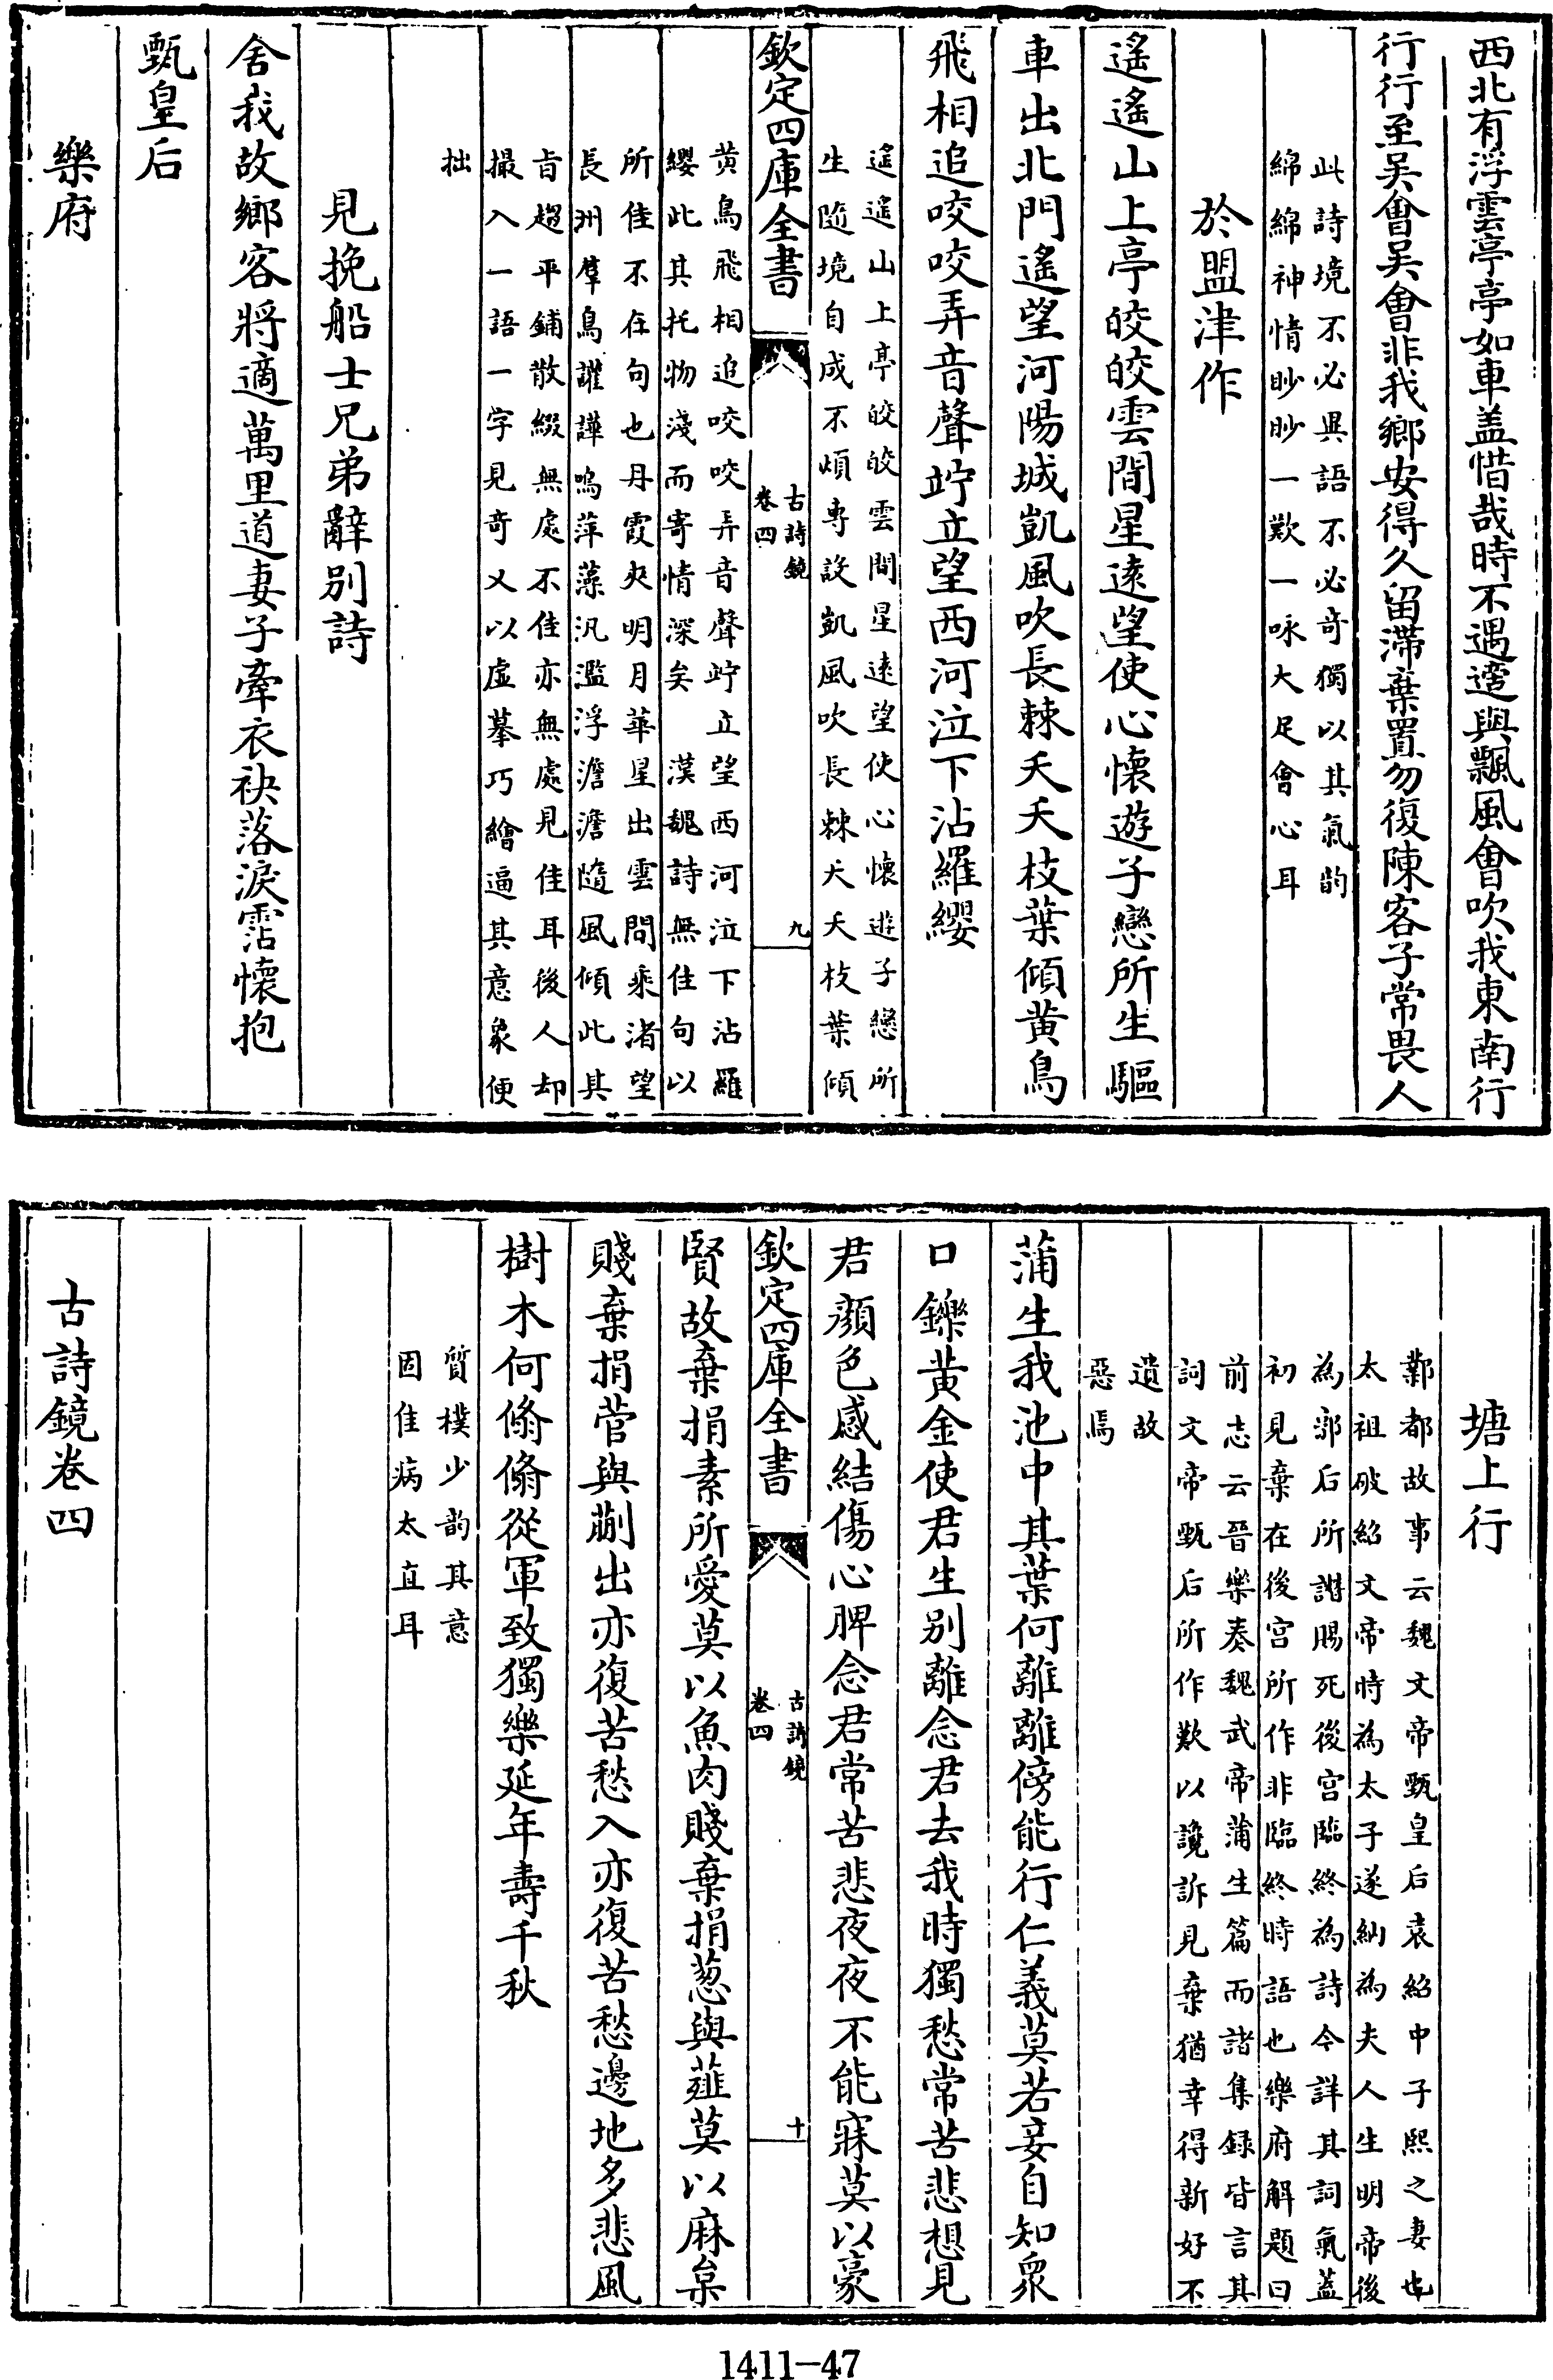 西北有浮雲亭亭如車盖惜哉時不遇適與飄風會吹我東南行
行行至吳會吳會非我鄉安得久留滯棄置勿復陳客子常畏人
此詩境不必異語不必竒獨以其氣韵
綿綿神情眇眇一歎一咏大足會心耳
於盟津作
遙遙山上亭皎皎雲間星逺望使心懷遊子戀所生驅
車出北門遙望河陽城凱風吹長棘夭夭枝葉傾黄鳥
飛相追咬咬弄音聲竚立望西河泣下沾羅纓
遙遙山上亭皎皎雲間星逺望使心懷遊子戀所
生隨境自成不煩專設凱風吹長棘夭夭枝葉傾
欽定四庫全書
古詩鏡
卷四
九
黄鳥飛相追咬咬弄音聲竚立望西河泣下沾羅
纓此其托物淺而寄情深矣 漢魏詩無佳句以
所佳不在句也丹霞夾明月華星出雲間乘渚望
長洲羣鳥讙譁鳴萍藻汎濫浮澹澹隨風傾此其
旨趨平鋪散綴無處不佳亦無處見佳耳後人却
撮入一語一字見竒又以虛摹巧繪逼其意象便
拙
見挽船士兄弟辭别詩
舍我故鄉客將適萬里道妻子牽衣袂落淚霑懷抱
甄皇后
樂府
塘上行
鄴都故事云魏文帝甄皇后袁紹中子熙之妻也
太祖破紹文帝時為太子遂納為夫人生明帝後
為郭后所譖賜死後宫臨終為詩今詳其詞氣葢
初見棄在後宫所作非臨終時語也樂府解題曰
前志云晉樂奏魏武帝蒲生篇而諸集録皆言其
詞文帝甄后所作歎以讒訴見棄猶幸得新好不
遺故
惡焉
蒲生我池中其葉何離離傍能行仁義莫若妾自知衆
口鑠黄金使君生别離念君去我時獨愁常苦悲想見
君顔色感結傷心脾念君常苦悲夜夜不能寐莫以豪
欽定四庫全書
古詩鏡
卷四
十
賢故棄捐素所愛莫以魚肉賤棄捐葱與薤莫以麻枲
賤棄捐菅與蒯出亦復苦愁入亦復苦愁邊地多悲風
樹木何翛翛從軍致獨樂延年壽千秋
質樸少韵其意
因佳病太直耳
古詩鏡卷四
1411—47